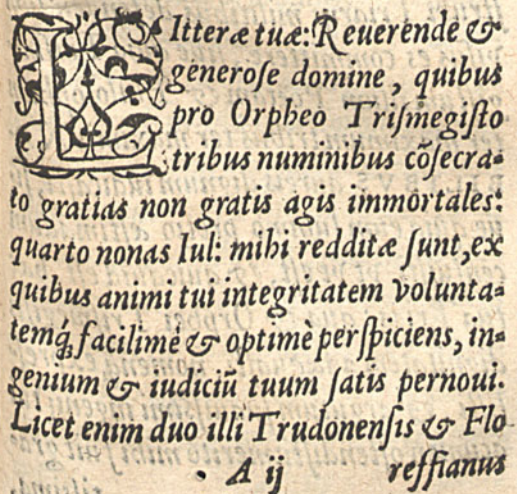 LItteræ tuæ: Reuerende &
generoſe domine, quibus
pro Orpheo Triſmegiſto
tribus numinibus cõſecra-
to gratias non gratis agis immortales:
quarto nonas Iul: mihi redditæ ſunt, ex
quibus animi tui integritatem volunta-
temq́; facilimè & optimè perſpiciens, in-
genium & iudiciũ tuum ſatis pernoui.
Licet enim duo illi Trudonenſis & Flo
A ij reffianus